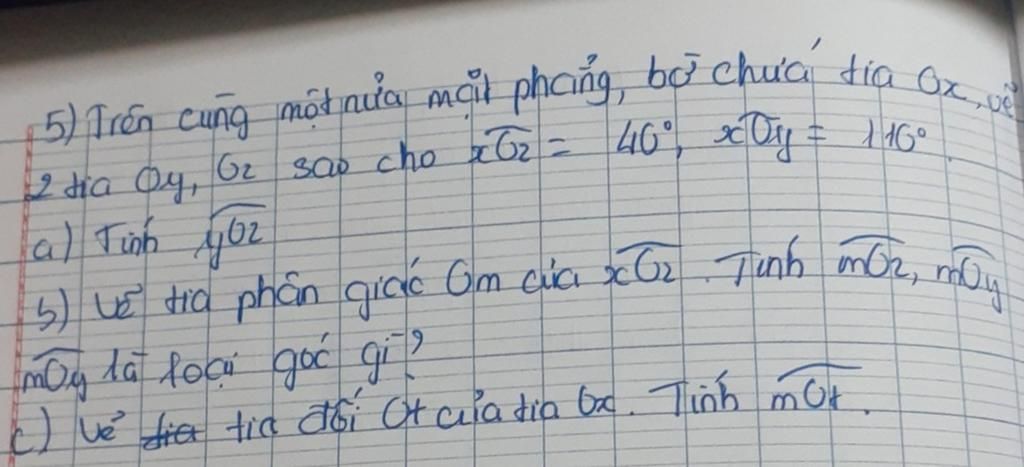 5) Trên cùng một nửa mặt phẳng, bờ chứa tia Ox, vẽ
2 tia Oy, Oz sao cho xOz = 40°, xOy = 110°.
a) Tính yOz
b) Vẽ tia phân giác Om của xOz. Tính mOz, mOy
mOy là loại góc gì?
c) Vẽ tia tia đối Ot của tia Ox. Tính mOt.